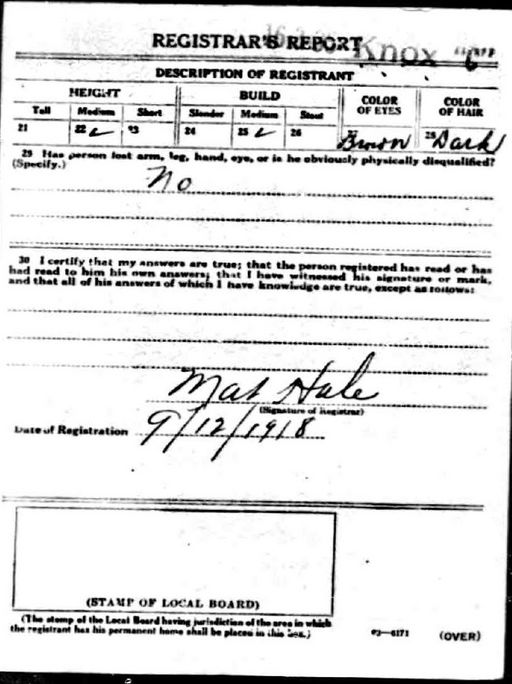 REGISTRAR'S REPORT
Knox
DESCRIPTION OF REGISTRANT
HEIGHT BUILD COLOR OF EYES COLOR OF HAIR
Tall Medium Short Slender Medium Stout
21 22 ✓ 23 24 25 ✓ 26 Brown 28 Dark
29 Has person lost arm, leg, hand, eye, or is he obviously physically disqualified?
(Specify.)
No
30 I certify that my answers are true; that the person registered has read or has
had read to him his own answers; that I have witnessed his signature or mark,
and that all of his answers of which I have knowledge are true, except as follows:
Mat Hale
(Signature of Registrar)
Date of Registration 9/12/1918
(STAMP OF LOCAL BOARD)
(The stamp of the Local Board having jurisdiction of the area in which
the registrant has his permanent home shall be placed in this box.)
03—6171 (OVER)